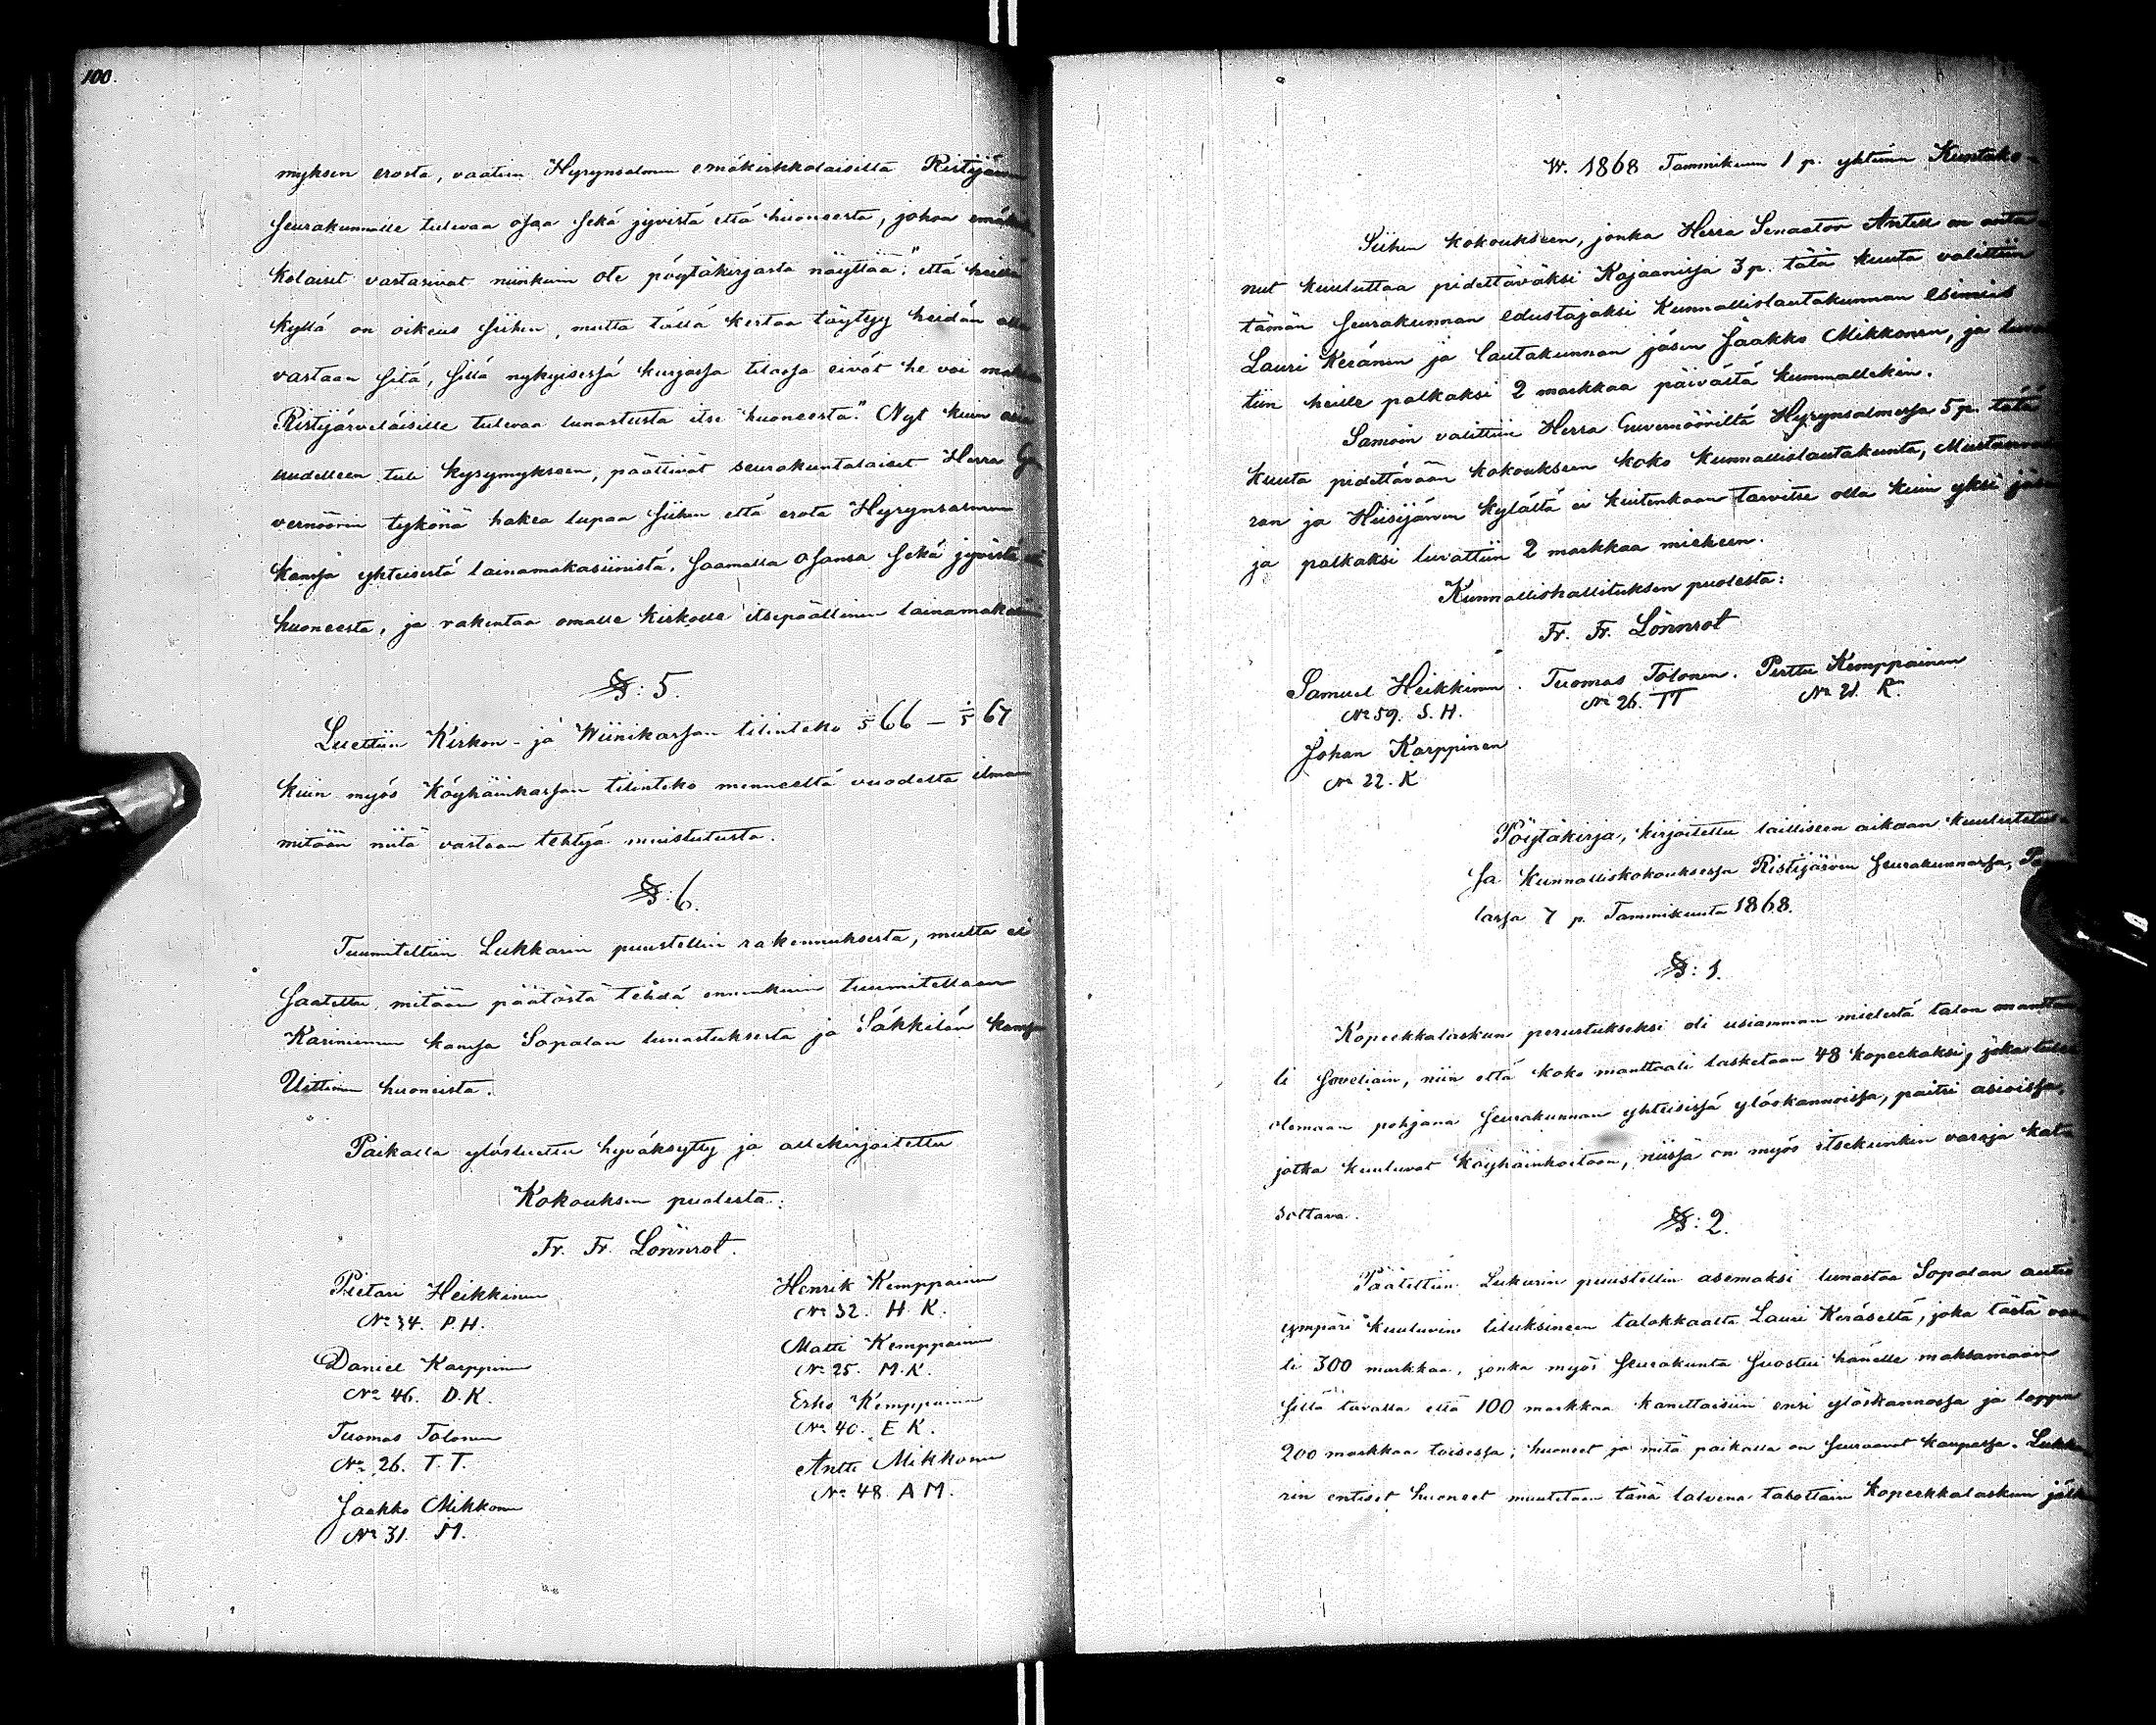 100.
myksen erosta, vaatien Hyrynsalmen emäkirkkolaisilta Ristijärven
seurakunnalle tulevaa osaa sekä jyvistä että huoneesta, johon emäkirk
kolaiset vastasivat niinkuin ote pöytäkirjasta näyttää: "että heillä
kyllä on oikeus siihen, mutta tällä kertaa täytyy heidän olla
vastaan sitä, sillä nykyisessä kurjassa tilassa eivät he voi maksaa
Ristijärveläisille tulevaa lunastusta itse huoneesta." Nyt kuin asia
uudelleen tuli kysymykseen, päättivät seurakuntalaiset Herra Gu
vernöörin tykönä hakea lupaa siihen että erota Hyrynsalmen
kanssa yhteisestä lainamakasiinista, saamalla osansa sekä jyvistä että
huoneesta, ja rakentaa omalle kirkolle itsepäällinen lainamakasiini
§: 5.
Luettiin Kirkon- ja Wiinikassan tilinteko 1/5 66 – 1/5 67
kuin myös Köyhäinkassan tilinteko menneeltä vuodelta ilman
mitään niitä vastaan tehtyä muistutusta.
§: 6.
Tuumiteltiin Lukkarin puustellin rakennuksesta, mutta ei
saatettu mitään päätöstä tehdä ennenkuin tuumitellaan
Kariniemen kanssa Sopalan lunastuksesta ja Säkkilän kanssa
Uittimen huoneista.
Paikalla ylösluettu hyväksytty ja allekirjoitettu
Kokouksen puolesta:
Fr. Fr. Lönnrot.
Pietari Heikkinen Henrik Kemppainen
No 34. P.H. No 32. H. K.
Daniel Karppinen Matti Kemppainen
No 46. D.K. No 25. M.K.
Tuomas Tolonen Erko Kemppainen
No 26. T.T. No 40. E K.
Jaakko Mikkonen Antti Mikkonen
No 31. M. No 48. A M.
W. 1868 Tammikuun 1 p. yhteinen Kuntako-
Siihen kokoukseen, jonka Herra Senaator Antell on anta-
nut kuuluttaa pidettäväksi Kajaanissa 3 p. tätä kuuta valittiin
tämän seurakunnan edustajaksi Kunnallislautakunnan esimies
Lauri Keränen ja lautakunnan jäsen Jaakko Mikkonen, ja luvat
tiin heille palkaksi 2 markkaa päivästä kummallekin.
Samoin valittiin Herra Guvernööriltä Hyrynsalmessa 5 p. tätä
kuuta pidettävään kokoukseen koko kunnallislautakunta, Mustanvaa
ran ja Hiisijärven kylältä ei kuitenkaan tarvitse olla kuin yksi jäsen
ja palkaksi luvattiin 2 markkaa mieheen.
Kunnallishallituksen puolesta:
Fr. Fr. Lönnrot
Samuel Heikkinen. Tuomas Tolonen. Perttu Kemppainen
No 59. S. H. No 26. TT No 21. K.
Johan Karppinen
No 22. K
Pöytäkirja, kirjoitettu lailliseen aikaan kuulutetus
sa kunnalliskokouksessa Ristijärven seurakunnassa, Pap
lassa 7 p. Tammikuuta 1868.
§: 1.
Kopeekkalaskun perustukseksi oli usiamman mielestä talon manttaa
li soveliain, niin että koko manttaali lasketaan 48 kopeekaksi, joka tulee
olemaan pohjana seurakunnan yhteisissä ylöskannoissa, paitsi asioissa,
jotka kuuluvat köyhäinhoitoon, niissä on myös itsekunkin varoja kat
sottava.
§: 2.
Päätettiin Lukarin puustellin asemaksi lunastaa Sopalan autio
ympäri kuuluvine tiluksineen talokkaalta Lauri Keräseltä, joka tästä vaa
ti 300 markkaa, jonka myös seurakunta suostui hänelle maksamaan
sillä tavalla että 100 markkaa kanettaisiin ensi ylöskannossa ja loppu
200 markkaa toisessa; huoneet ja mitä paikalla on seuraavat kaupassa. Lukka
rin entiset huoneet muutetaan tänä talvena talottain kopeekkalaskun jälk